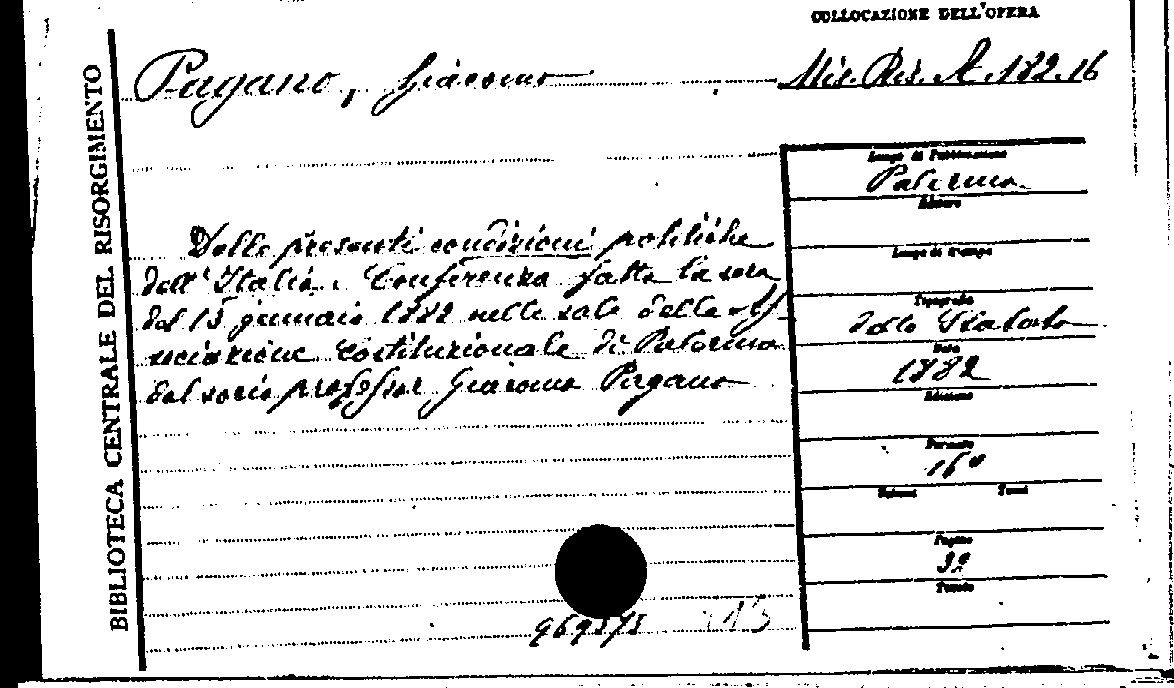 COLLOCAZIONE DELL'OPERA
Pagano, Giacomo
Mis. Ris. A. 182.16
BIBLIOTECA CENTRALE DEL RISORGIMENTO
Delle presenti condizioni politiche
dell'Italia. Conferenza fatta la sera
del 15 gennaio 1882 nelle sale della As-
sociazione Costituzionale di Palermo
dal socio professor Giacomo Pagano
Luogo di Pubblicazione
Palermo
Editore
Luogo di stampa
Tipografia
dello Statuto
Data
1882
Edizione
Formato
16°
Volumi Tomi
Pagine
32
Tavole
969575